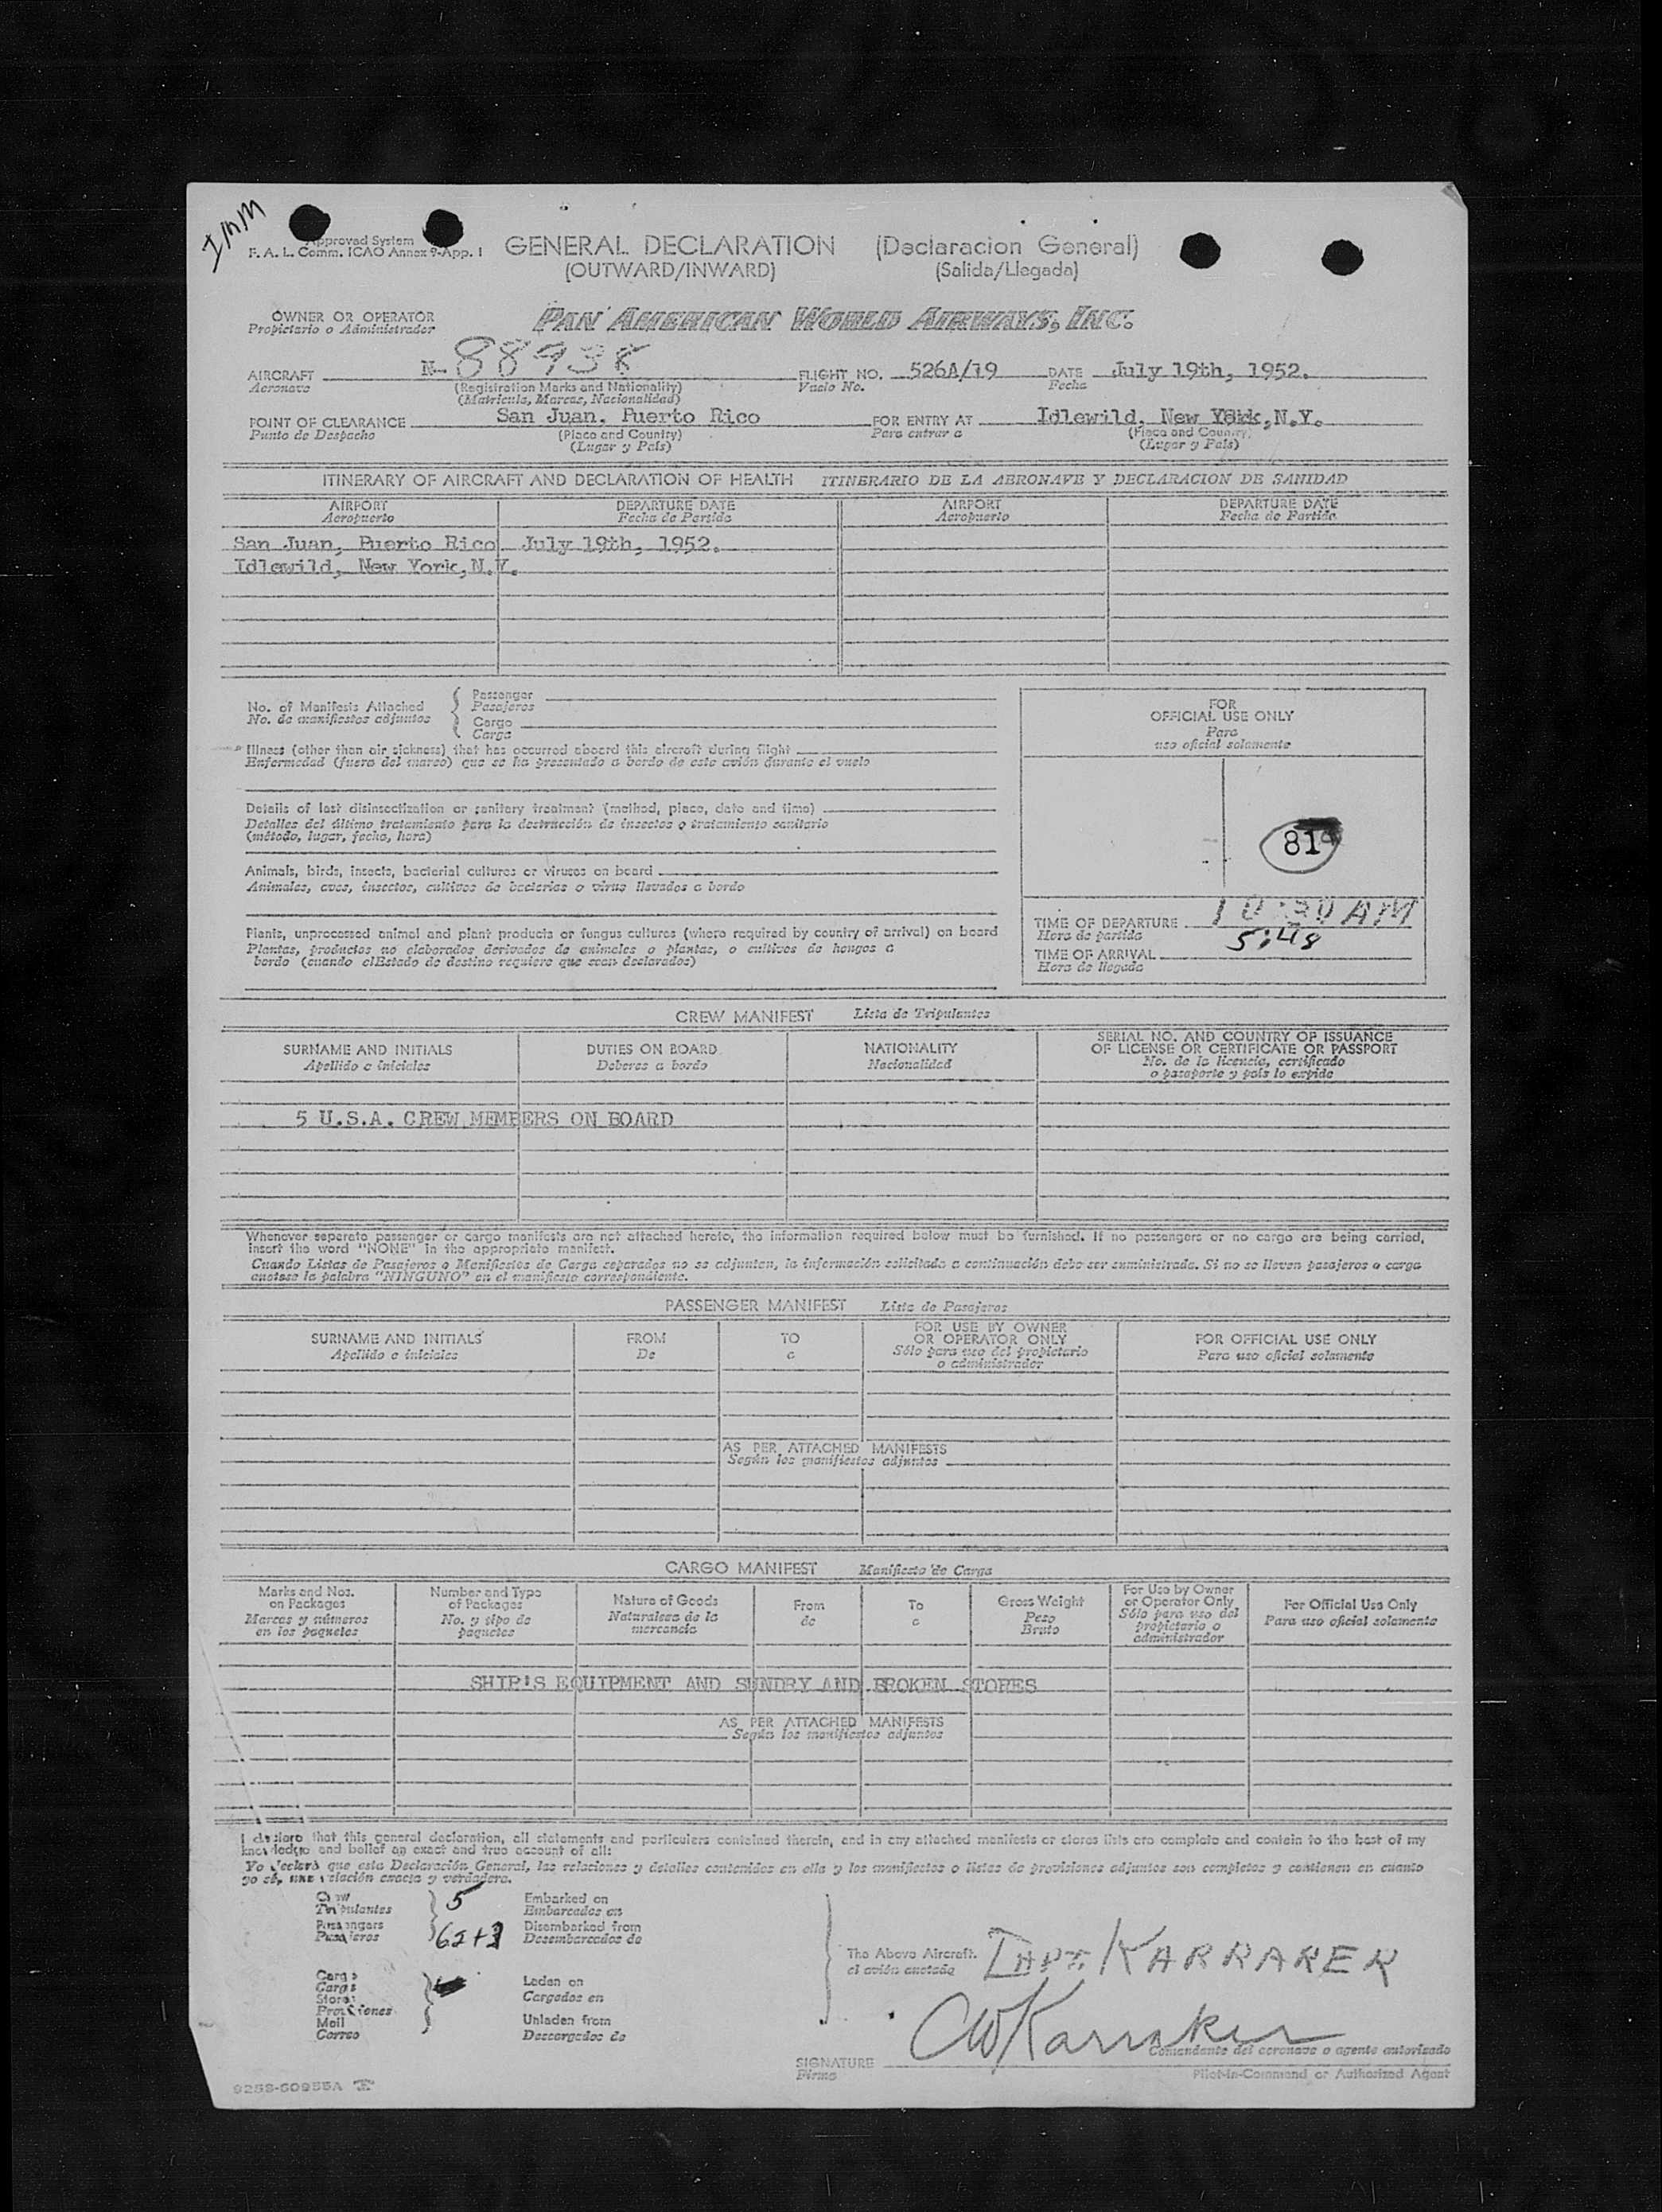 IMM
Approved System
F. A. L. Comm. ICAO Annex 9-App. 1
GENERAL DECLARATION (Declaracion General)
(OUTWARD/INWARD) (Salida/Llegada)
OWNER OR OPERATOR
Propietario o Administrador
PAN AMERICAN WORLD AIRWAYS, INC.
AIRCRAFT N-88938 FLIGHT NO. 526A/19 DATE July 19th, 1952.
Aeronave (Registration Marks and Nationality) Vuelo No. Fecha
(Matricula, Marcas, Nacionalidad)
POINT OF CLEARANCE San Juan, Puerto Rico FOR ENTRY AT Idlewild, New York, N.Y.
Punto de Despacho (Place and Country) Para entrar a (Place and Country)
(Lugar y País) (Lugar y País)
ITINERARY OF AIRCRAFT AND DECLARATION OF HEALTH ITINERARIO DE LA AERONAVE Y DECLARACION DE SANIDAD
AIRPORT DEPARTURE DATE AIRPORT DEPARTURE DATE
Aeropuerto Fecha de Partida Aeropuerto Fecha de Partida
San Juan, Puerto Rico July 19th, 1952.
Idlewild, New York, N.Y.
No. of Manifests Attached
No. de manifiestos adjuntos
Passenger
Pasajeros
Cargo
Carga
Illness (other than air sickness) that has occurred aboard this aircraft during flight
Enfermedad (fuera del mareo) que se ha presentado a bordo de este avión durante el vuelo
Details of last disinsectization or sanitary treatment (method, place, date and time)
Detalles del último tratamiento para la destrucción de insectos o tratamiento sanitario
(método, lugar, fecha, hora)
Animals, birds, insects, bacterial cultures or viruses on board
Animales, aves, insectos, cultivos de bacterias o virus llevados a bordo
Plants, unprocessed animal and plant products or fungus cultures (where required by country of arrival) on board
Plantas, productos no elaborados derivados de animales o plantas, o cultivos de hongos a
bordo (cuando elEstado de destino requiere que sean declarados)
FOR
OFFICIAL USE ONLY
Para
uso oficial solamente
81
TIME OF DEPARTURE 10:30 AM
Hora de partida
5:48
TIME OF ARRIVAL
Hora de llegada
CREW MANIFEST Lista de Tripulantes
SURNAME AND INITIALS DUTIES ON BOARD NATIONALITY SERIAL NO. AND COUNTRY OF ISSUANCE
OF LICENSE OR CERTIFICATE OR PASSPORT
Apellido e iniciales Deberes a bordo Nacionalidad No. de la licencia, certificado
o pasaporte y país lo expide
5 U.S.A. CREW MEMBERS ON BOARD
Whenever separate passenger or cargo manifests are not attached hereto, the information required below must be furnished. If no passengers or no cargo are being carried,
insert the word "NONE" in the appropriate manifest.
Cuando Listas de Pasajeros o Manifiestos de Carga separados no se adjunten, la información solicitada a continuación debe ser suministrada. Si no se lleven pasajeros o carga
anotese la palabra "NINGUNO" en el manifiesto correspondiente.
PASSENGER MANIFEST Lista de Pasajeros
SURNAME AND INITIALS FROM TO FOR USE BY OWNER
OR OPERATOR ONLY FOR OFFICIAL USE ONLY
Apellido e iniciales De a Sólo para uso del propietario
o administrador Para uso oficial solamente
AS PER ATTACHED MANIFESTS
Según los manifiestos adjuntos
CARGO MANIFEST Manifiesto de Carga
Marks and Nos.
on Packages
Marcas y números
en los paquetes
Number and Type
of Packages
No. y tipo de
paquetes
Nature of Goods
Naturaleza de la
mercancía
From
de
To
a
Gross Weight
Peso
Bruto
For Use by Owner
or Operator Only
Sólo para uso del
propietario o
administrador
For Official Use Only
Para uso oficial solamente
SHIP'S EQUIPMENT AND SUNDRY AND BROKEN STORES
AS PER ATTACHED MANIFESTS
Según los manifiestos adjuntos
I declare that this general declaration, all statements and particulars contained therein, and in any attached manifests or stores lists are complete and contain to the best of my
knowledge and belief an exact and true account of all:
Yo declaro que esta Declaración General, las relaciones y detalles contenidos en ella y los manifiestos o listas de provisiones adjuntos son completos y contienen en cuanto
yo sé, una relación exacta y verdadera.
Crew 5 Embarked on
Tripulantes Embarcados en
Passengers 62+3 Disembarked from
Pasajeros Desembarcados de
Cargo
Carga
Stores
Provisiones
Mail
Correo
Laden on
Cargados en
Unladen from
Descargados de
The Above Aircraft.
el avión anotado
CAPT. KARRAKER
CW Karraker
SIGNATURE
Firma
Comandante del aeronave o agente autorizado
Pilot-in-Command or Authorized Agent
9258-50955A